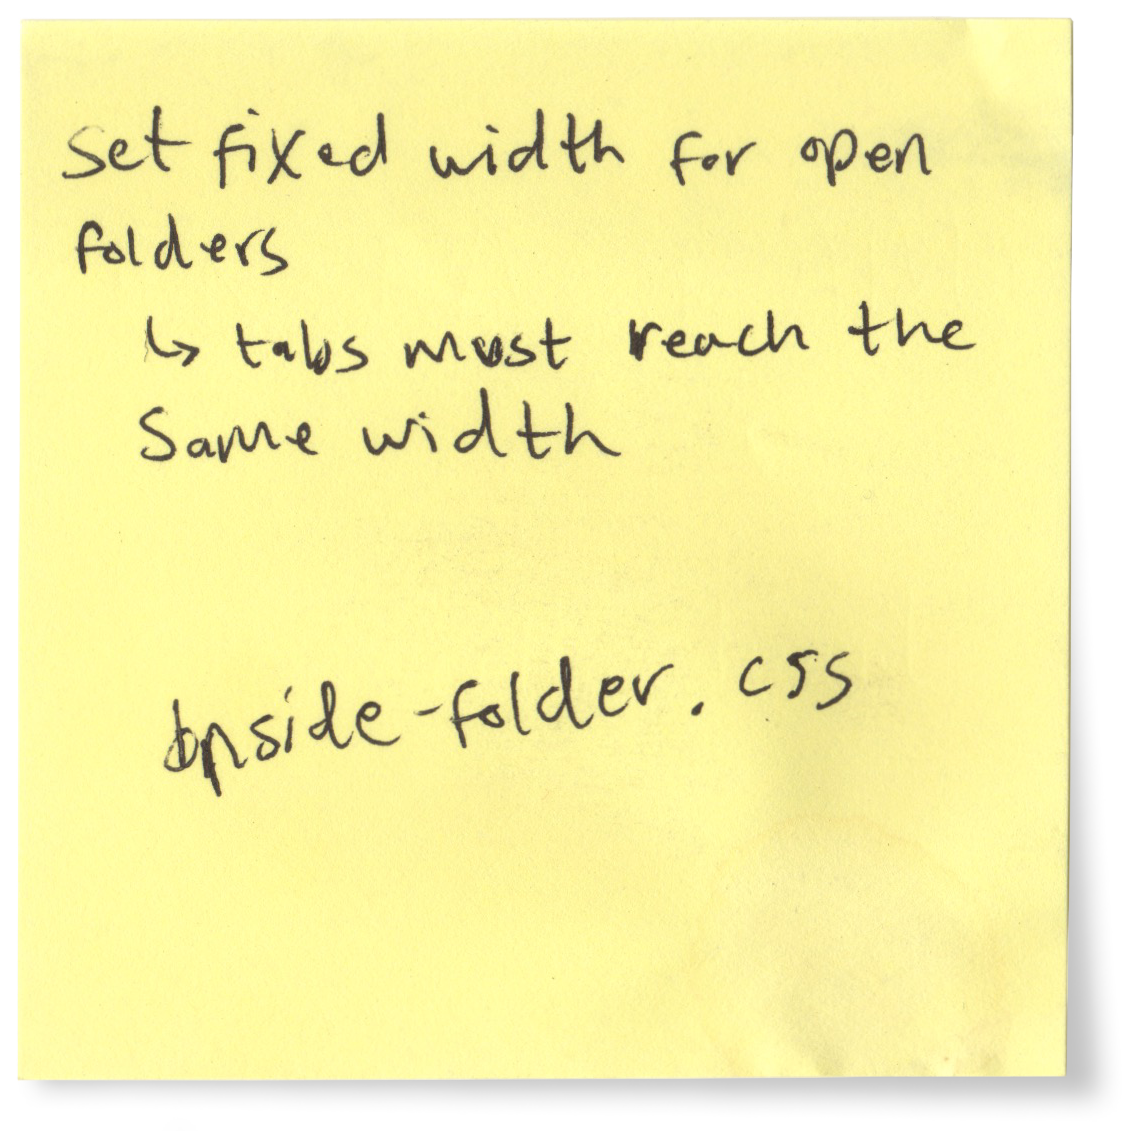 set fixed width for open
folders
↳ tabs must reach the
same width
inside-folder.css